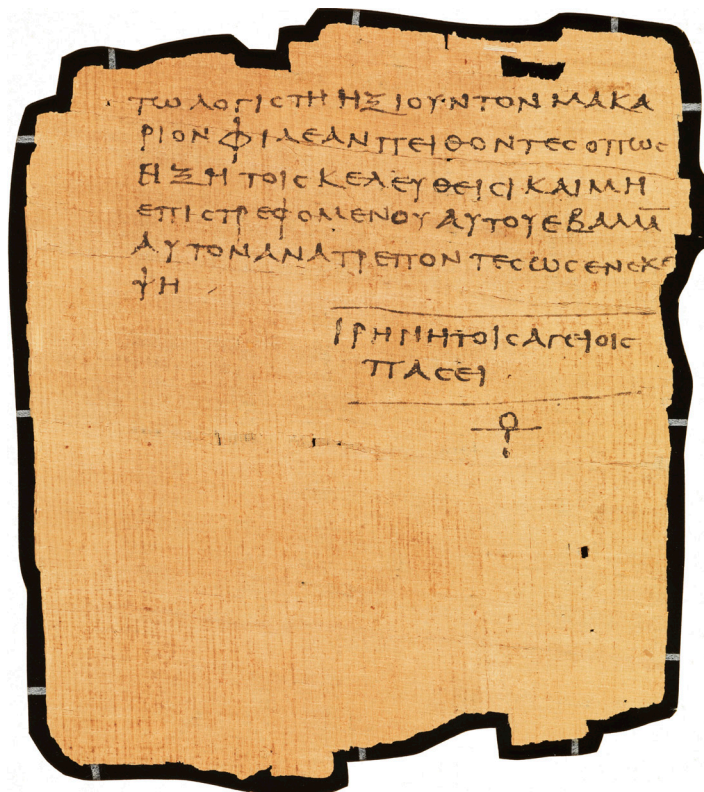 ΤΩ ΛΟΓΙСΤΗ ΗΞΙΟΥΝ ΤΟΝ ΜΑΚΑ
ΡΙΟΝ ΦΙΛΕΑΝ ΠΕΙΘΟΝΤΕС ΟΠΩС
ΕΙΞΗ ΤΟΙС ΚΕΛΕΥΘΕΙСΙ ΚΑΙ ΜΗ
ΕΠΙСΤΡΕΦΟΜΕΝΟΥ ΑΥΤΟΥ ΕΒΑΛΛΑ̅
ΑΥΤΟΝ ΑΝΑΤΡΕΠΟΝΤΕС ΩС ΕΝ СΚΕ
ΨΗ
ΙΡΗΝΗ ΤΟΙС ΑΓΕΙΟΙС
ΠΑСΕΙ